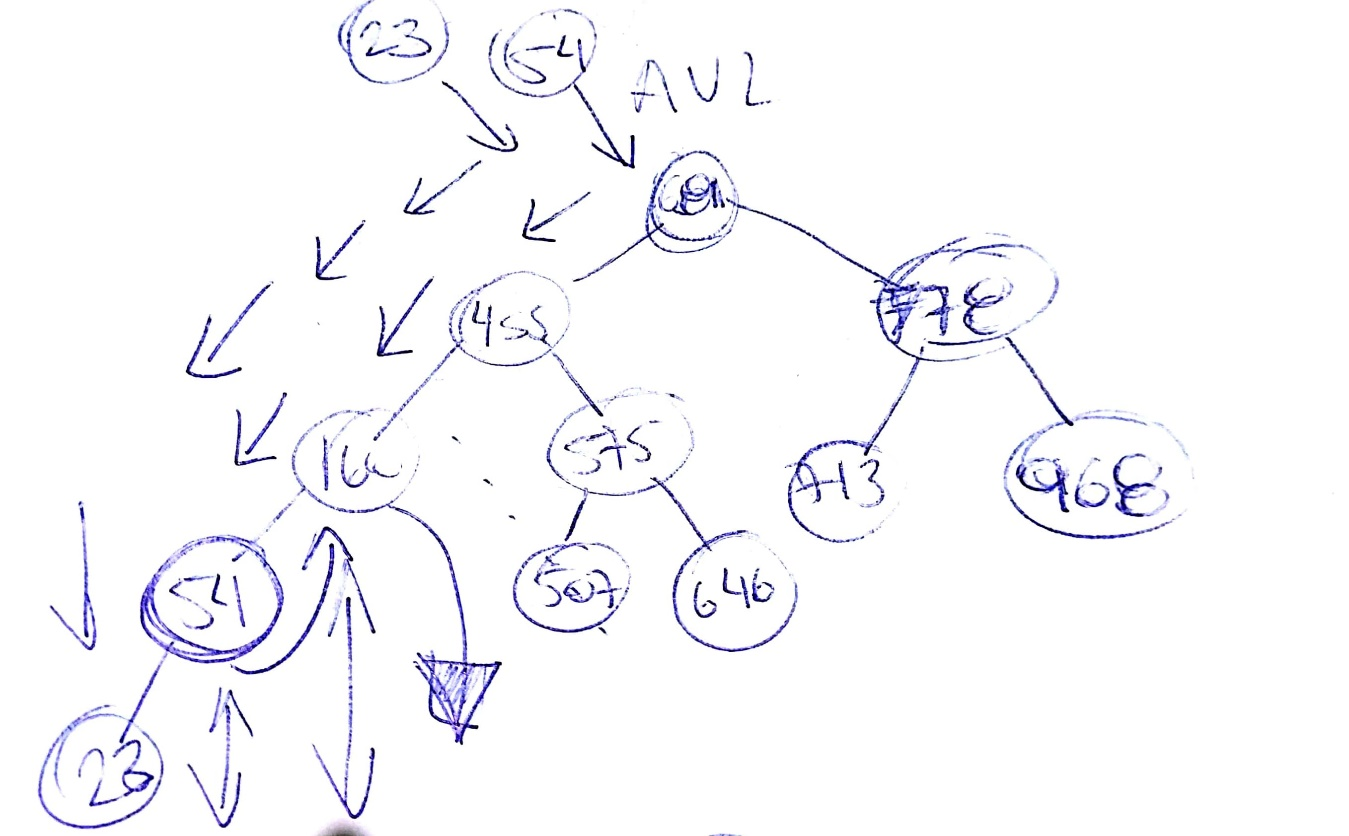 23 54 AVL
455 778
575 713 968
54 507 646
23